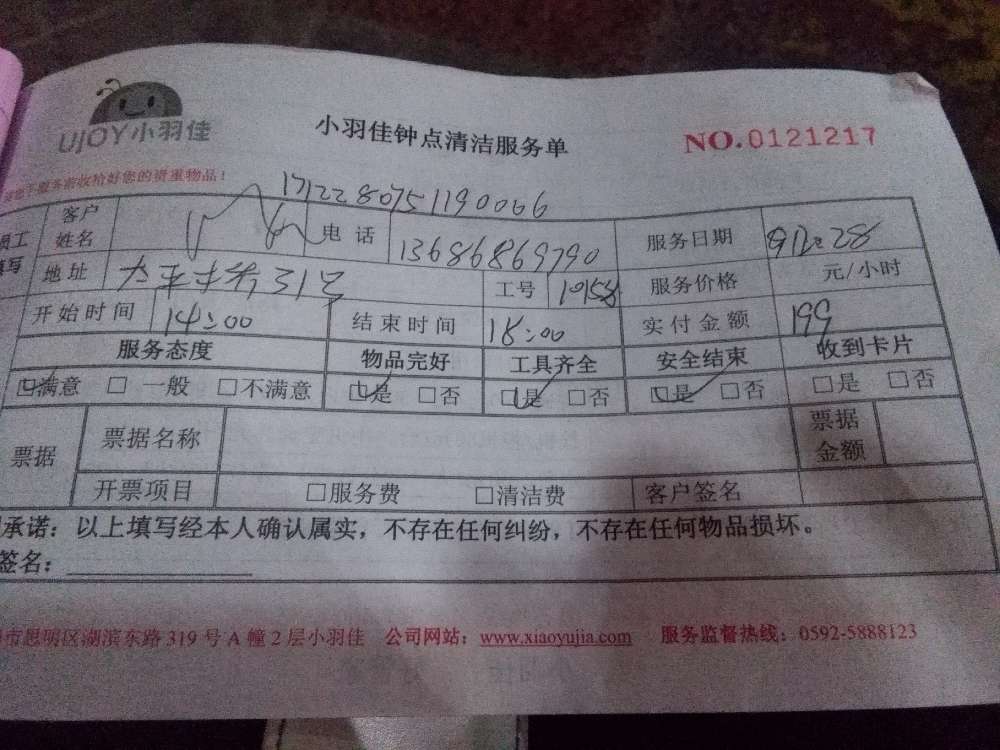 UJOY小羽佳
小羽佳钟点清洁服务单
NO.0121217
服务前收拾好您的贵重物品！
1712280751190066
员工填写
客户姓名
电话 13686869790
服务日期
地址 31号
工号 10158
服务价格 元/小时
开始时间 14:00
结束时间 18:00
实付金额 199
服务态度 物品完好 工具齐全 安全结束 收到卡片
□满意 □一般 □不满意 □是 □否 □是 □否 □是 □否 □是 □否
票据 票据名称 票据金额
开票项目 □服务费 □清洁费 客户签名
承诺：以上填写经本人确认属实，不存在任何纠纷，不存在任何物品损坏。
签名：
市思明区湖滨东路319号A幢2层小羽佳 公司网站：www.xiaoyujia.com 服务监督热线：0592-5888123